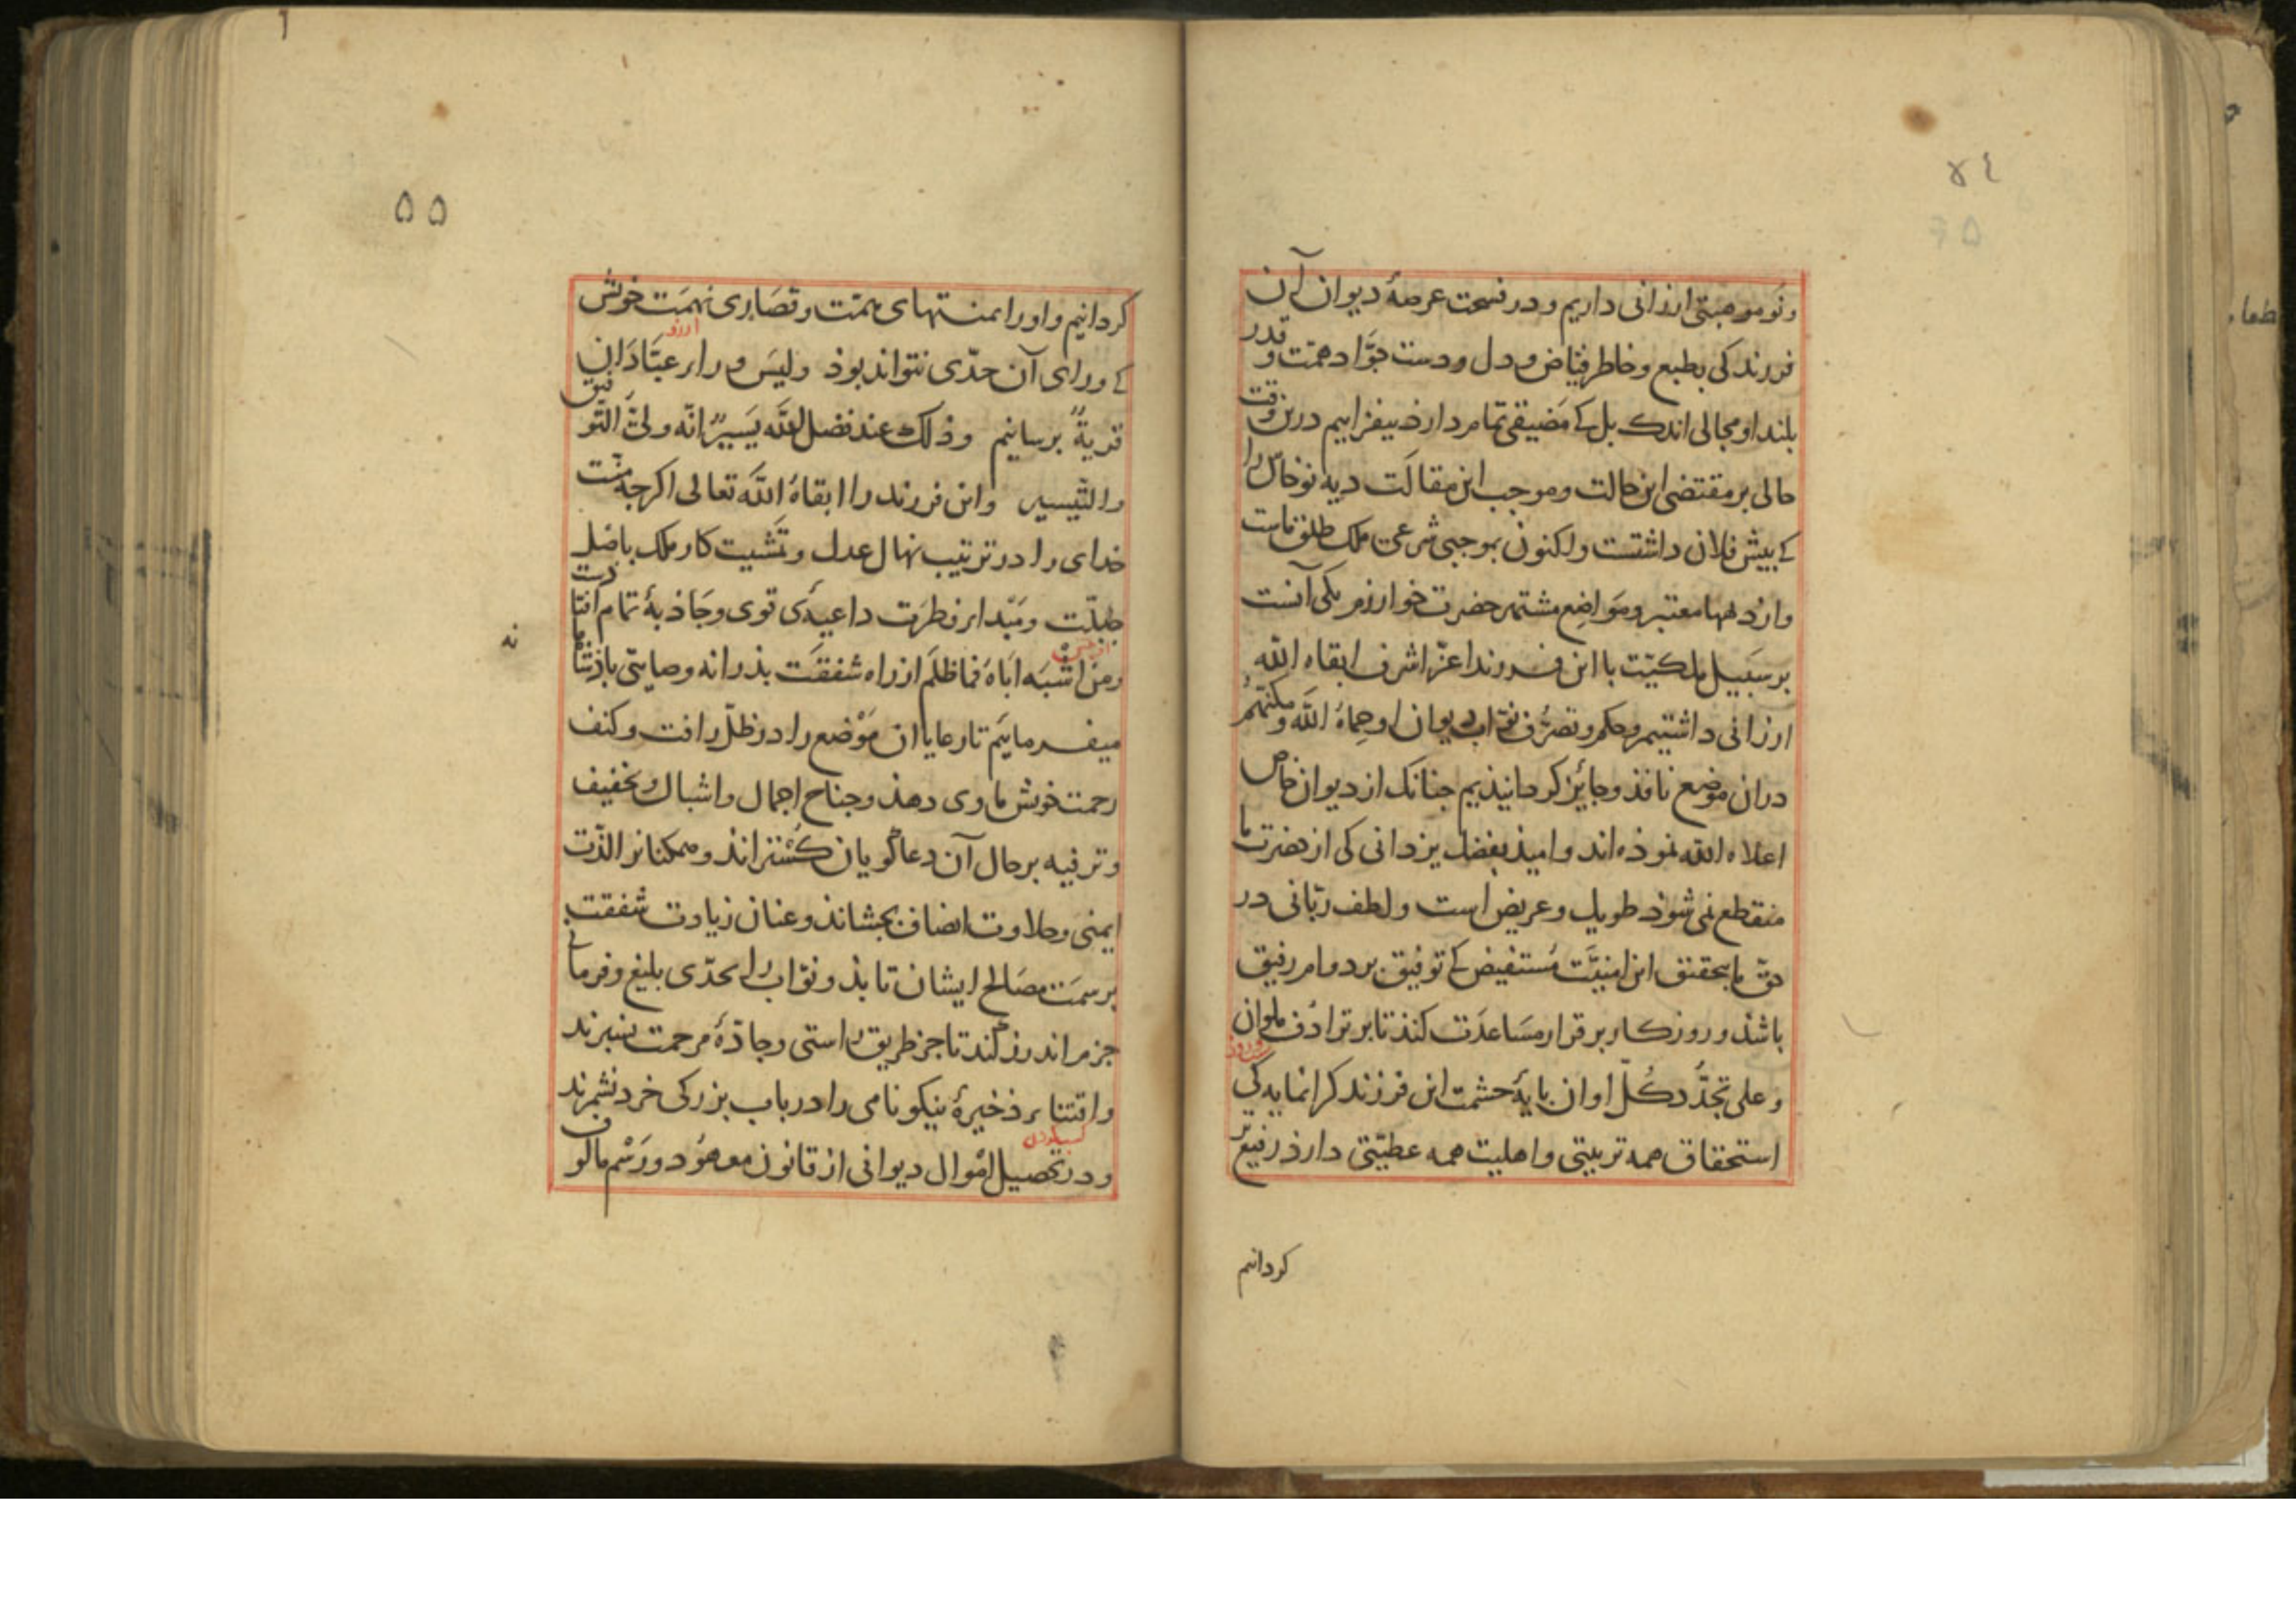 ٥٤
ونو موهبتی ارزانی داریم و در فسحت عرصۀ دیوان آن
فرزند کی بطبع و خاطر فیّاض و دل و دست جوّاد و همّت و قدر
بلند او مجالی اندک بل کے مَضیقی تمام دارذ بیفزاییم درین وقت
حالی بر مقتضی این حالت و موجب این مقالَت دیه نوخاسّ را
کے بیش فلان داشتست و اکنون بموجبی شرعی ملک طلق ماست
و از دهها معتبر و مَواضِع مشتهر حضرت خوارزم یکی آنست
بر سَبیل ملکیّت با این فرزند اعزّ اشرف ابقاه الله
ارزانی داشتیم و حکم و تصرّف نوّاب دیوان او حِماهُ اللّه و مکنتهم
دران موضع نافذ و جائز کردانیذیم جنانک از دیوان خاص
اعلاه اللّه نموذه اند و امیذ بفضل یزدانی کی از حضرت ما
منقطع نمی شوذ طویل و عریض است و لطف ربّانی در
حقّ ما بتحقیق این امنیَّت مُستفیض کے توفیق بر دوام رفیق
باشذ و روزکار بر قرار مسَاعدَت کنذ تا بر ترادُف ملوان
و علی تجدُّد کُلّ اوان بایۀ حشمت این فرزند کرانمایه کی
استحقاق همه تربیتی و اهلیت همه عطیّتی دارذ رفیع تر
کردانیم
٥٥
کردانیم و او را بمنتهای همّت و قصَارِی نهمَت خویش
ارزو
کے ورای آن حدّی نتواند بوذ و لیسَ وراء عبّادَان
قریةٌ برسانیم و ذلک عند فضل اللّه یَسیرٌ انّه ولیّ التّوفیق
و التّیسیر و این فرزند را ابقاهُ اللّه تعالی اکرجه منّت
خدای را در ترتیب نهال عدل و تمَشیت کار ملک باصل
جبلّت و مَبْدا فطرَت داعیۀ قوی و جَاذبۀ تمام افتادست
و مَن اشبَه ابَاهَ فما ظلَم از راه شفقَت بذرانه وصایتی باذشاهانه
میفرماییَم تا رعایا ان مَوْضع را در ظلّ رافت و کنف
رحمت خویش ماوی دهذ و جناح اجمال و اشبال و تخفیف
و ترفیه بر حال آن دعا کویان کُستراند و ممکنانرا لذّت
ایمنی و حلاوت انصاف بجشاند و عنان زیادت شفقت
بر سمَت مصَالح ایشان تابذ و نوّاب را بحدّی بلیغ و فرمانی
جزم اندرز کند تا جز طریق راستی و جادّۀ مرحمت نسبرند
و اقتناء ذخیرۀ نیکو نامی را در باب بزرکی خرد نشمرند
و در تحصیل اموال دیوانی از قانون معهُود و رَسْم مالوف